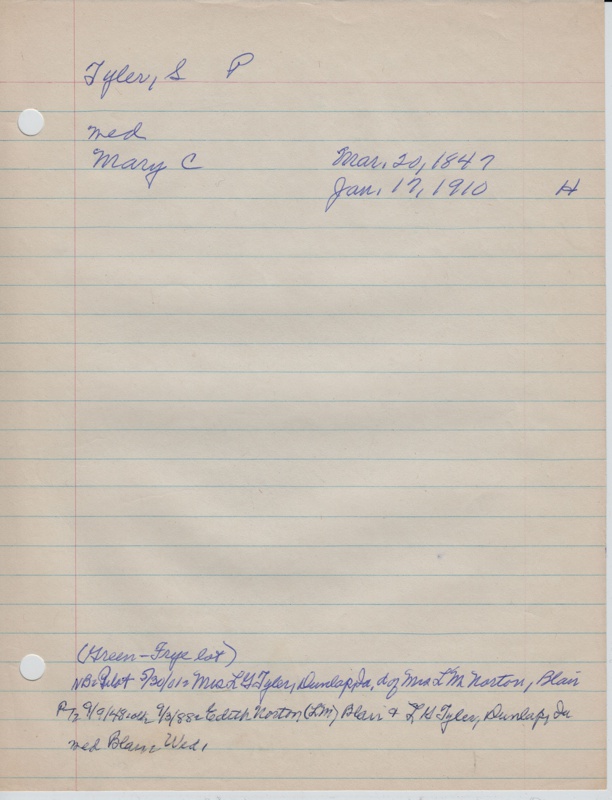 Tyler, S P
med
Mary C Mar. 20, 1847
Jan. 17, 1910 H
(Green-Frye lot)
Pilot 5/30/01: Mrs L G Tyler, Dunlap, Ia, of Mrs L M Norton, Blair
9/9/48: 9/3/88: Edith Norton (L M) Blair & L G Tyler, Dunlap, Ia
med Blair Wed.